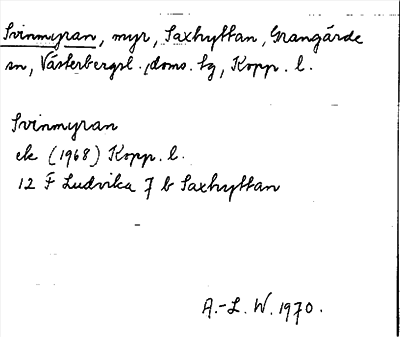 Svinmyran, myr, Saxhyttan, Grangärde
sn, Västerbergsl. doms. tg, Kopp. l.
Svinmyran
ek (1968) Kopp. l.
12 F Ludvika 7 b Saxhyttan
A.-L. W. 1970.